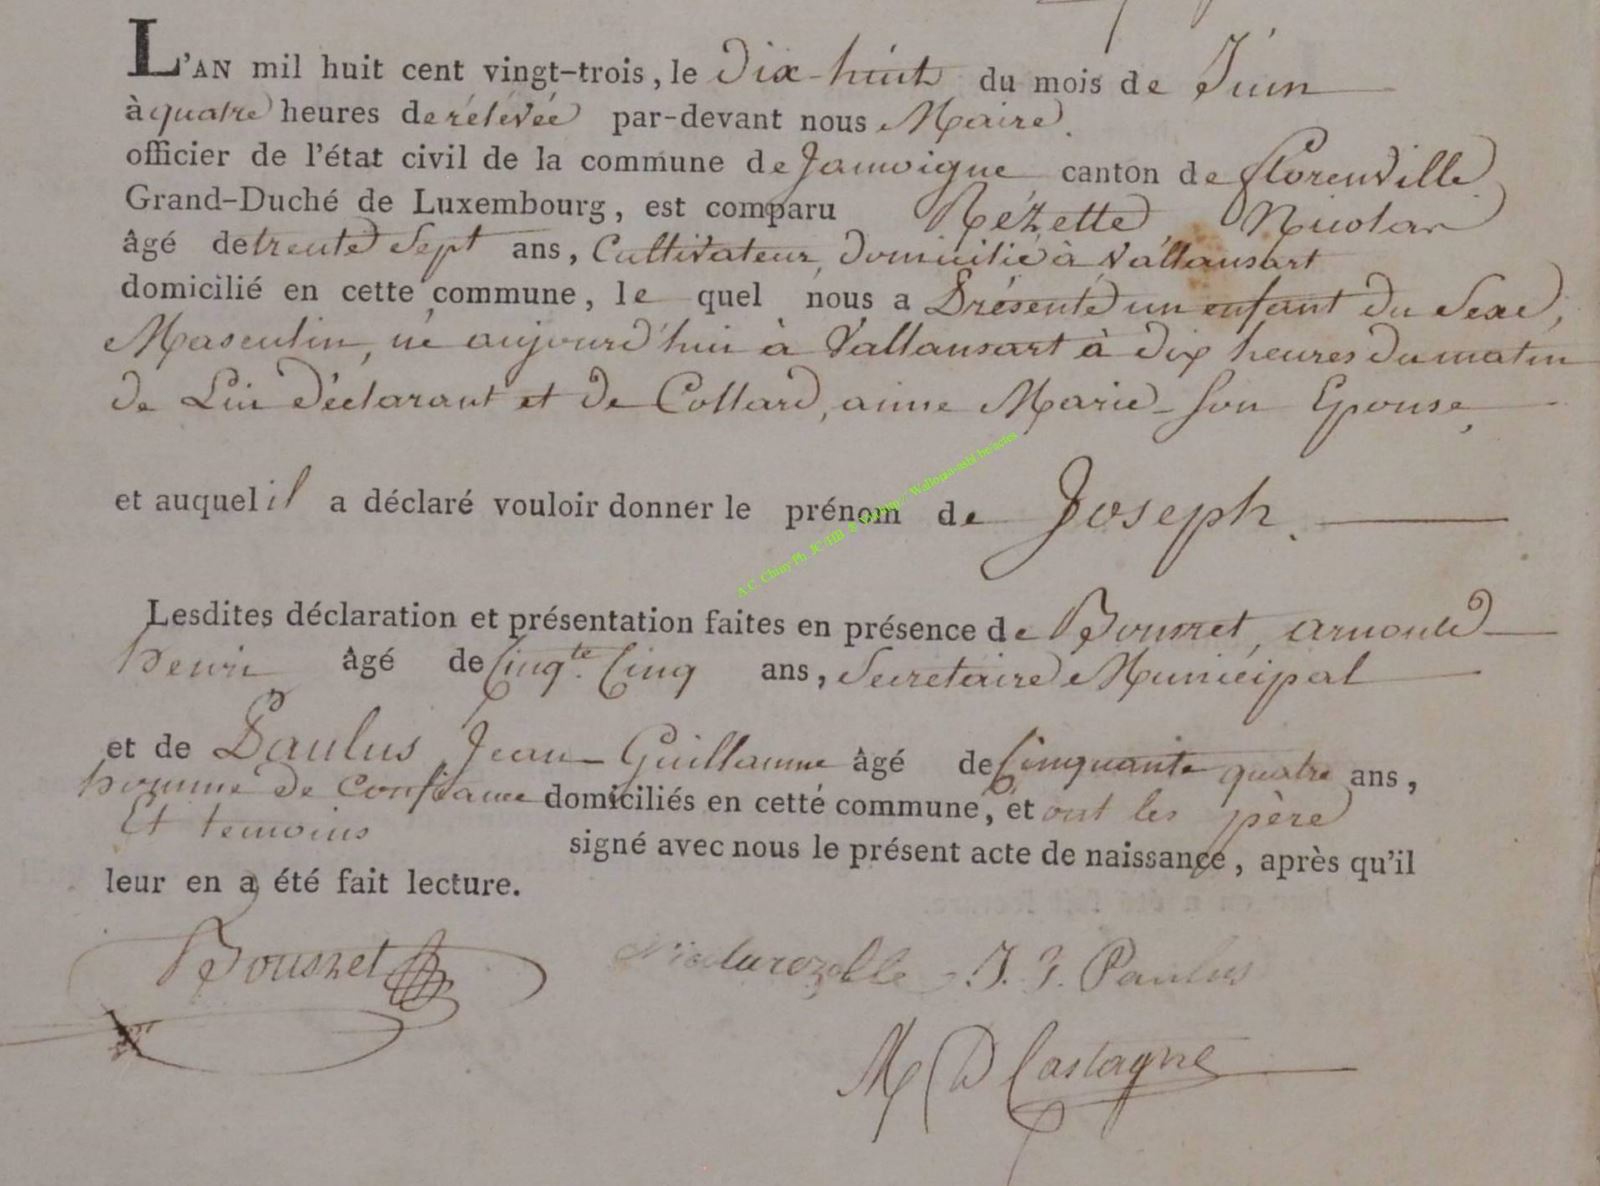 L'AN mil huit cent vingt-trois, le Dix-huit du mois de Juin
à quatre heures de rélévée par-devant nous Maire.
officier de l'état civil de la commune de Jamoigne canton de florenville
Grand-Duché de Luxembourg, est comparu Rézette, Nicolas
âgé de trente Sept ans, Cultivateur, domicilié à Vallansart
domicilié en cette commune, le quel nous a Présenté un enfant du Sexe,
Masculin, né aujourd'hui à Vallansart à dix heures du matin
de Lui déclarant et de Collard, anne Marie - son Epouse,
et auquel il a déclaré vouloir donner le prénom de Joseph.
Lesdites déclaration et présentation faites en présence de Bousret, arnould
henri âgé de Cinqte. Cinq ans, Secretaire Municipal
et de Paulus Jean-Guillaume âgé de Cinquante quatre ans,
homme de confiance domiciliés en cette commune, et ont les père
Et temoins signé avec nous le présent acte de naissance, après qu'il
leur en a été fait lecture.
Bousret Nicola rozelle J. G. Paulus
M D Castagne
A.C. Chiny Ph. JC/HB